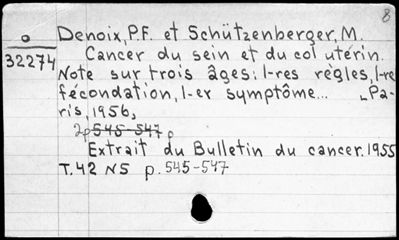 8
o
32274
Denoix, P.F. et Schützenberger, M.
Cancer du sein et du col utérin.
Note sur trois âges: 1-res règles, 1-re
fécondation, 1-er symptôme... Pa-
ris, 1956,
2p 545-547 p
Extrait du Bulletin du cancer. 1955
T. 42 N5 p. 545-547